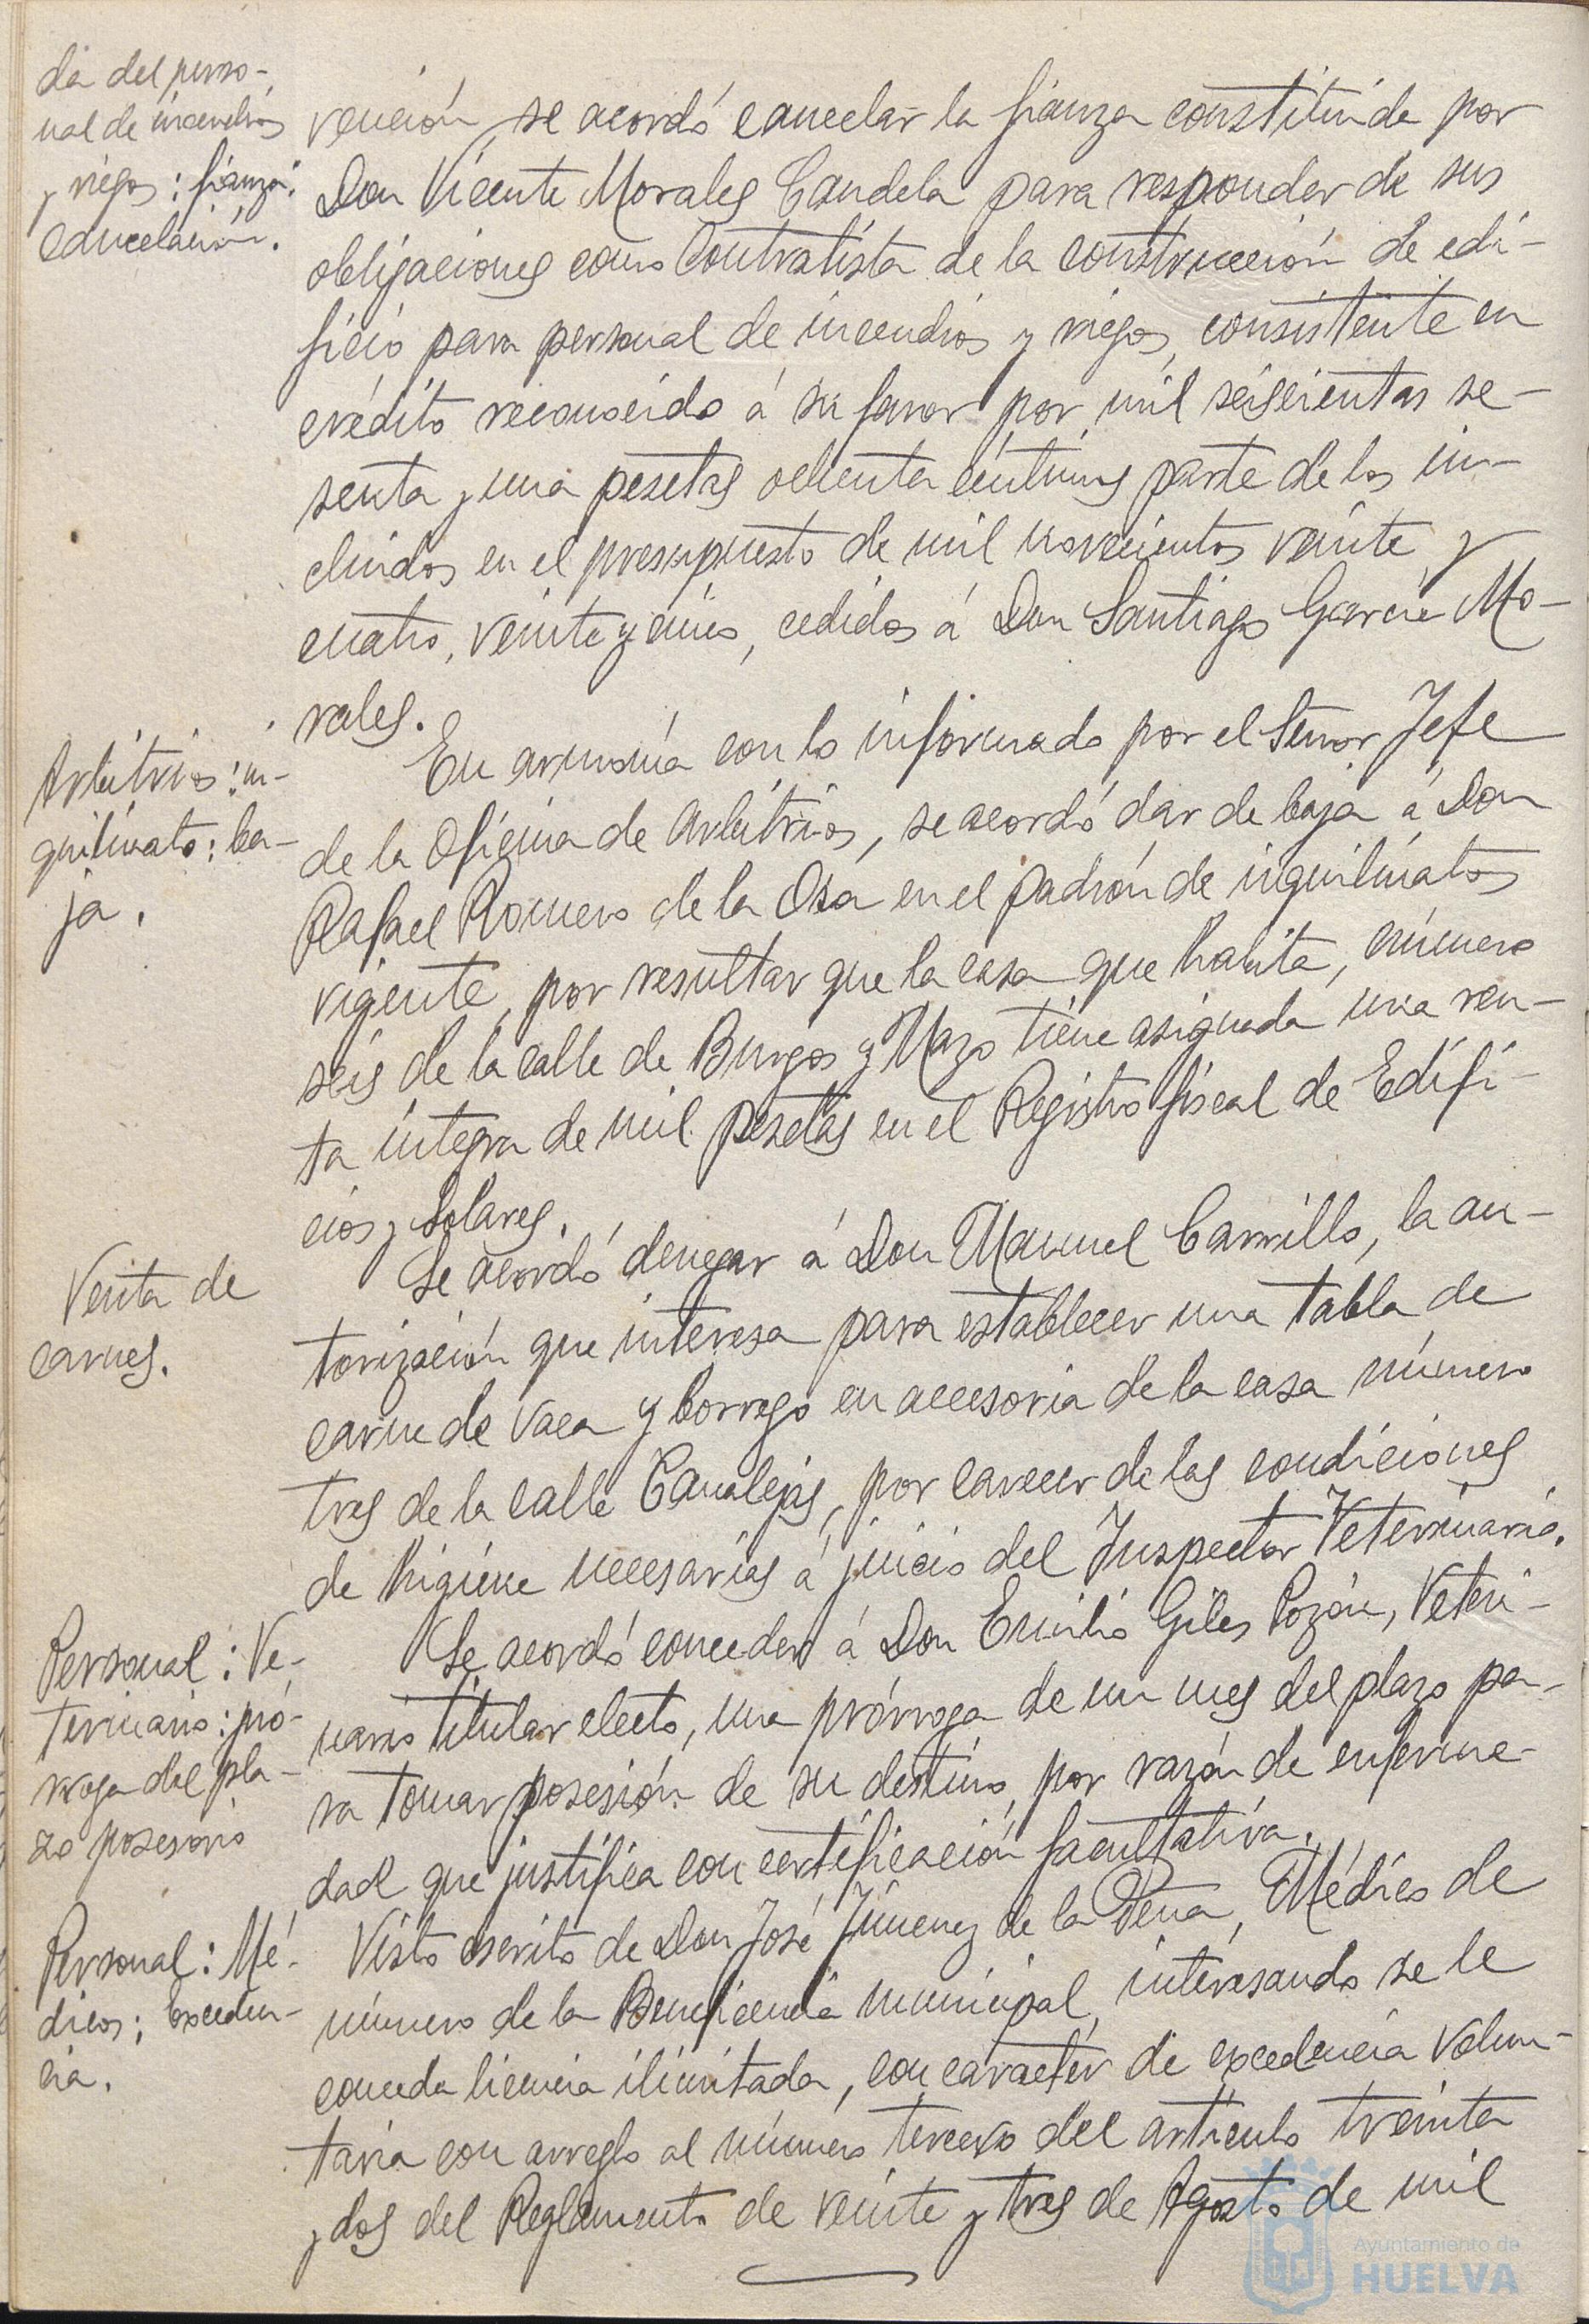 da del perso-
nal de incendios
y riegos: fianza:
cancelación.
vención, se acordó cancelar la fianza constituida por
Don Vicente Morales Candela para responder de sus
obligaciones como Contratista de la construcción de edi-
ficio para personal de incendios y riegos, consistente en
crédito reconocido á su favor por mil seiscientas se-
senta y una pesetas ochenta céntimos parte de los in-
cluidos en el presupuesto de mil novecientos veinte y
cuatro, veinte y cinco, cedidos á Don Santiago García Mo-
rales.
Arbitrios: in-
quilinato: ba-
ja.
En armonía con lo informado por el Señor Jefe
de la Oficina de Arbitrios, se acordó dar de baja á Don
Rafael Romero de la Osa en el padrón de inquilinatos
vigente, por resultar que la casa que habita, número
seis de la calle de Burgos y Mazo tiene asignada una ren-
ta íntegra de mil pesetas en el Registro fiscal de Edifi-
cios y Solares.
Venta de
carnes.
Se acordó denegar á Don Manuel Carrillo, la au-
torización que interesa para establecer una tabla de
carne de vaca y borrego en accesoria de la casa número
tres de la calle Canalejas, por carecer de las condiciones
de higiene necesarias á juicio del Inspector Veterinario.
Personal: Ve-
terinario: pró-
rroga del pla-
zo posesorio
Se acordó conceder á Don Emilio Giles Pozón, Veteri-
nario titular electo, una prórroga de un mes del plazo pa-
ra tomar posesión de su destino, por razón de enferme-
dad que justifica con certificación facultativa.
Personal: Mé-
dicos; Exceden-
cia.
Visto escrito de Don José Jimenez de la Peña, Médico de
número de la Beneficencia municipal, interesando se le
conceda licencia ilimitada, con carácter de excedencia volun-
taria con arreglo al número tercero del artículo treinta
y dos del Reglamento de veinte y tres de Agosto de mil
Ayuntamiento de
HUELVA